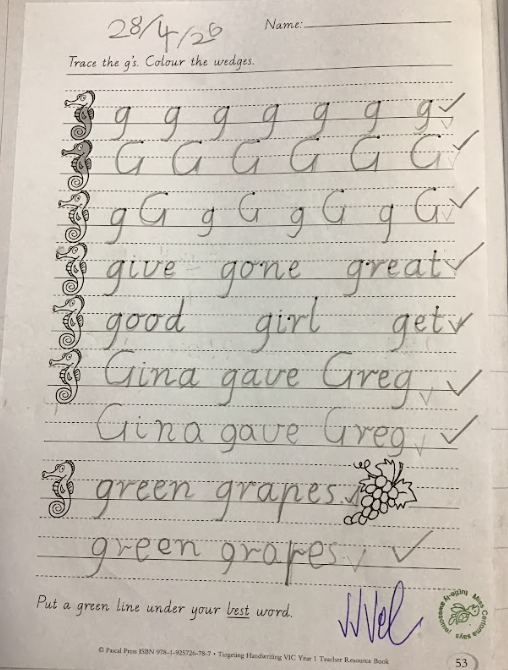 28/4/20
Name:
Trace the g's. Colour the wedges.
g g g g g g g
G G G G G G
g G g G g G g G
give gone great
good girl get
Gina gave Greg
Gina gave Greg
green grapes.
green grapes
Put a green line under your best word.
© Pascal Press ISBN 978-1-925726-78-7 • Targeting Handwriting VIC Year 1 Teacher Resource Book
53